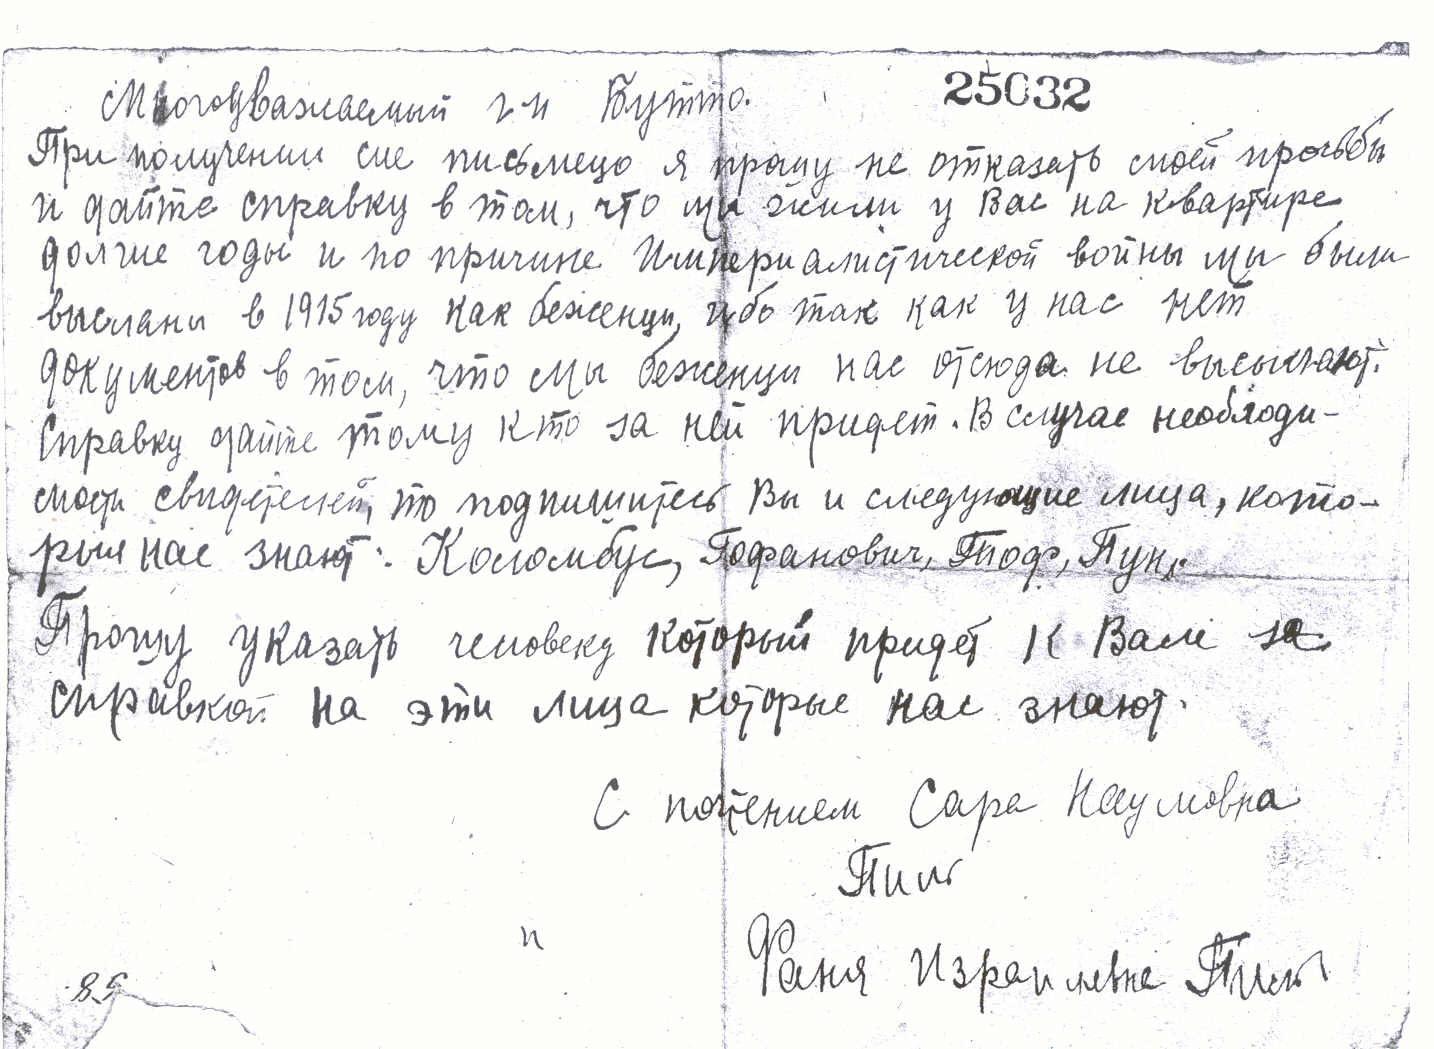 Многоуважаемый г-н Бутто.
25032
При получении сие письмецо я прошу не отказать моей прозьбы
и дайте справку в том, что мы жили у Вас на квартире
долгие годы и по причине Империалистической войны мы были
высланы в 1915 году как беженцы, ибо так как у нас нет
документов в том, что мы беженцы нас отсюда не высылают.
Справку дайте тому кто за ней придет. В случае необходи-
мости свидетелей, то подпишитесь Вы и следующие лица, кото-
рыя нас знают: Коломбус, Гофанович, Тоф, Пунк
Прошу указать человеку который придет к Вам за
справкой на эти лица которые нас знают.
С почтением Сара Наумовна
Пиль
и
Фаня Израилевна Пиль
85